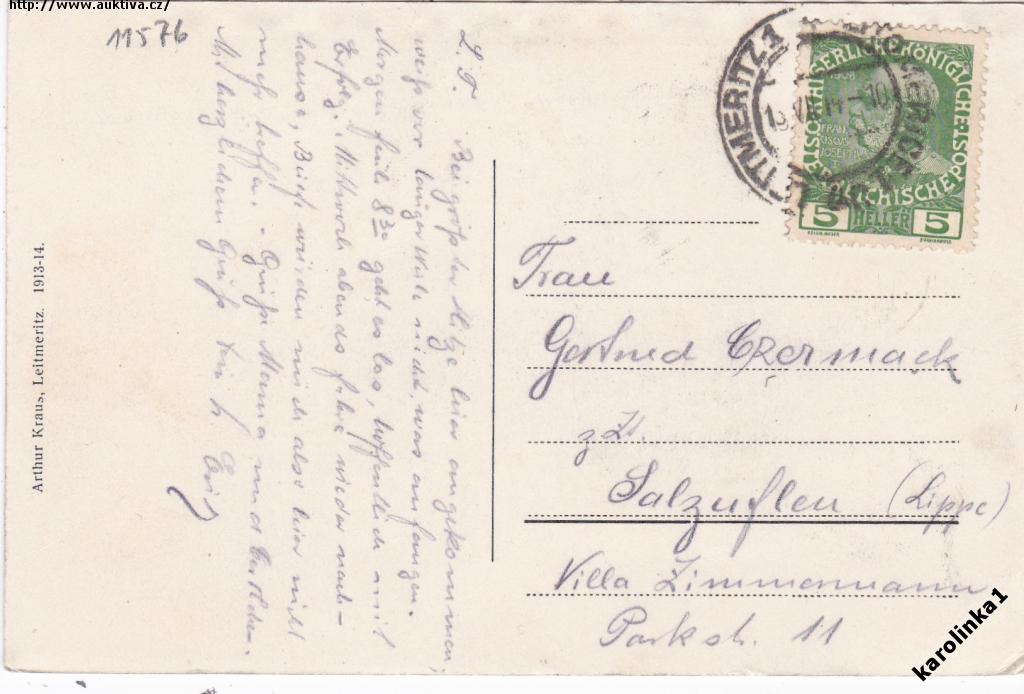 http://www.auktiva.cz/
11576
L. T.
Bei größter Hitze hier angekommen,
weiß vor langer Weile nicht, was anfangen.
Morgen früh 8 30 geht es los, hoffentlich mit
Erfolg. Mittwoch abends fahre wieder nach-
hause, Briefe würden mich also hier nicht
mehr treffen. - Grüße Mama und
Mit herzlichem Gruß bin ich
Arthur Kraus, Leitmeritz. 1913-14.
LEITMERITZ 1
KAISERLICHE KÖNIGLICHE
ÖSTERREICHISCHE POST
1908
5 HELLER 5
Frau
Gertrud Czermack
z. Z.
Salzuflen (Lippe)
Villa Zimmermann
Parkstr. 11
karolinka1